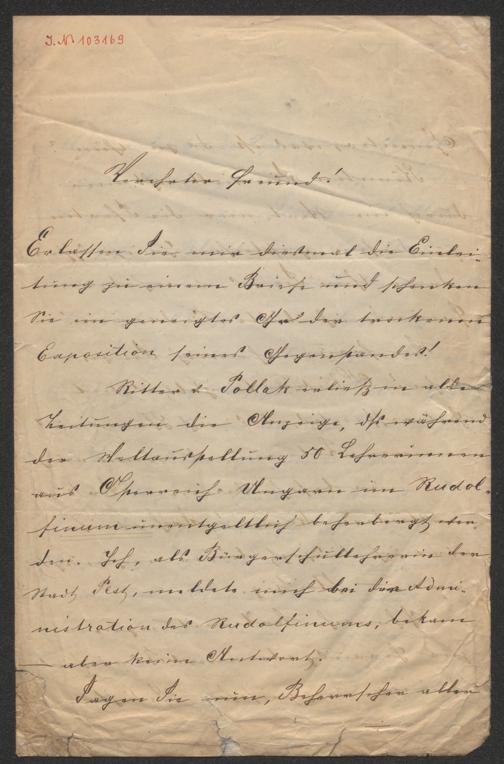 J. N. 103169
Verehrter Freund!
Erlassen Sie mir diesmal die Einlei-
tung zu einem Briefe und schenken
Sie ein geneigtes Ohr der trockenen
Exposition seines Gegenstandes!
Ritter v. Pollak erließ in allen
Zeitungen die Anzeige, dß während
der Weltausstellung 50 Lehrerinnen
aus Österreich-Ungarn im Rudol-
finum unentgeltlich beherbergt wer-
den. Ich, als Bürgerschullehrerin der
Stadt Pest, meldete mich bei der Admi-
nistration des Rudolfinums, bekam
aber keine Antwort.
Sagen Sie nun, Beherrscher aller